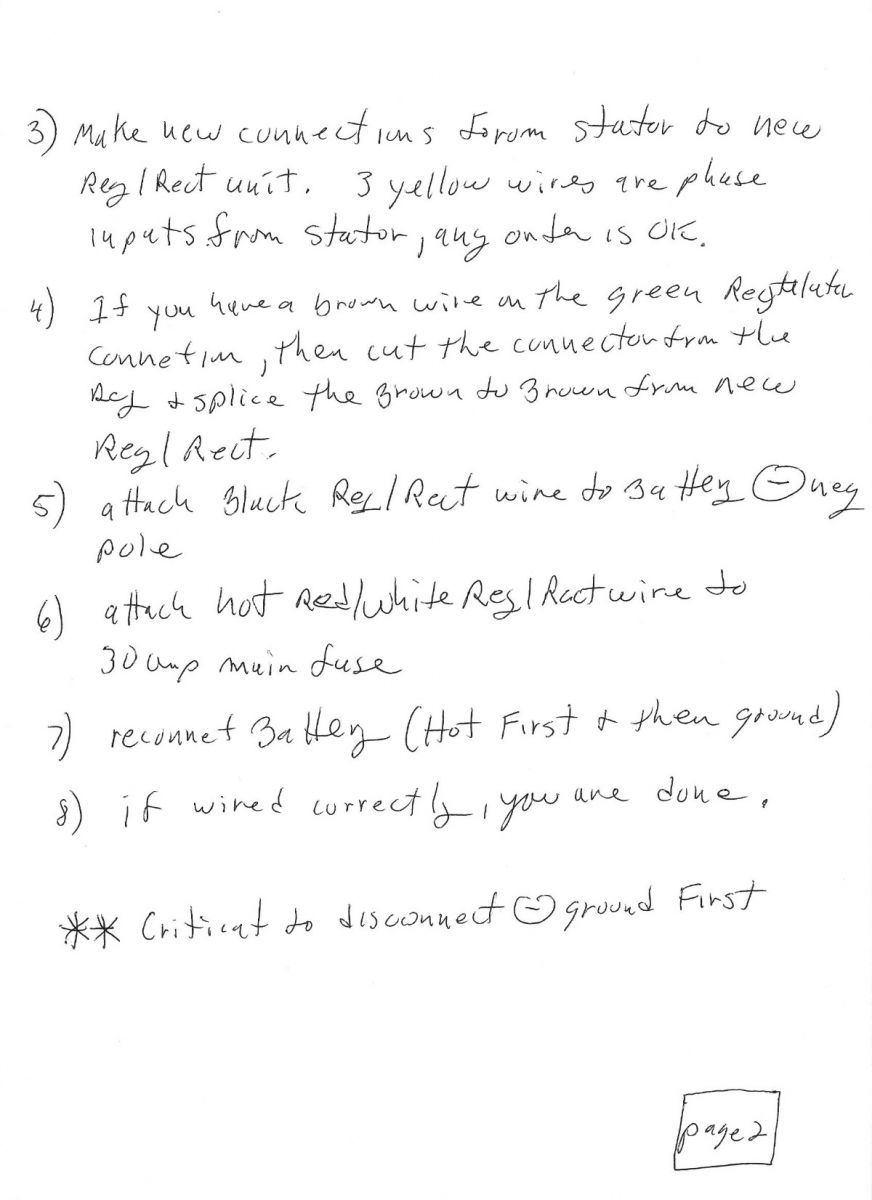 3) Make new connections forom stator to new
Reg/Rect unit. 3 yellow wires are phase
inputs from stator, any order is OK.
4) If you have a brown wire on the green
Connetion, then cut the connector from the
Reg & splice the Brown to Brown from new
Reg/Rect.
5) attach Black Reg/Rect wire to Battery ⊖ neg
pole
6) attach hot Red/white Reg/Rect wire to
30 amp main fuse
7) reconnet Battery (Hot First & then ground)
8) if wired correctly, you are done.
** Critical to disconnect ⊖ ground First
page 2